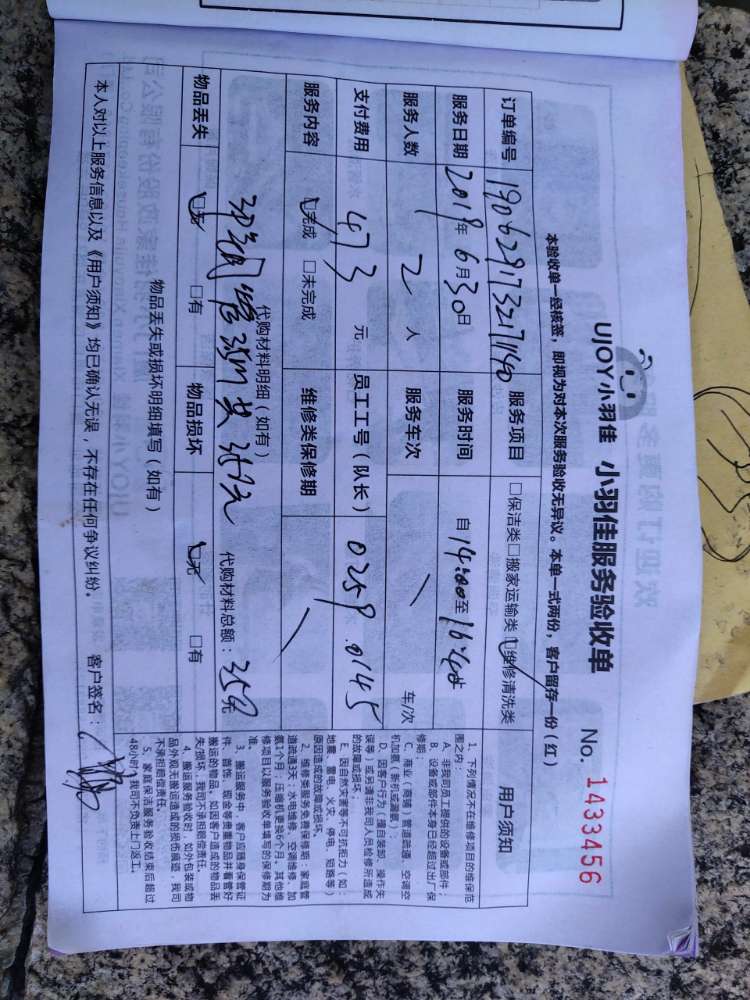 UJOY小羽佳 小羽佳服务验收单
No. 1433456
本验收单一经核签，即视为对本次服务验收无异议。本单一式两份，客户留存一份（红）
订单编号 服务项目 □保洁类□搬家运输类□维修清洗类
服务日期 2019年6月30日 服务时间 自14:00至16:40
服务人数 2人 服务车次 车/次
支付费用 473元 员工工号（队长） 0259 0145
服务内容 □完成 □未完成 维修类保修期
代购材料明细（如有）
代购材料总额：359元
物品丢失 □无 □有 物品损坏 □无 □有
物品丢失或损坏明细填写（如有）
本人对以上服务信息以及《用户须知》均已确认无误，不存在任何争议纠纷。 客户签名：
用户须知
1、下列情况不在维修项目的维保范
围之内：
A、非我司员工提供的设备或部件；
B、设备或部件本身已经超过出厂保
修期；
C、商业/商铺/管道疏通、空调空
机加氨（新机或漏氨）；
D、因客户行为（擅自装卸、操作失
误等）或另请非我司人员检修所造成
的故障或损坏；
E、因自然灾害等不可抗拒力（如：
地震、雷电、火灾、停电、短路等）
原因造成的故障或损坏。
2、维修类服务免费保修期：家庭管
道疏通3天；水电维修、空调维修、加
氨1个月；压缩机更换6个月，其他维
修项目以服务验收单填写的保修期为
准。
3、搬运服务中，客户应随身保管证
件、首饰、现金等贵重物品并看管好
搬运的物品，如因客户造成的物品丢
失/损坏，我司不承担赔偿责任。
4、搬运服务验收时，如外包装或物
品外观无搬运造成的损伤痕迹，我司
不承担赔偿责任。
5、家庭保洁服务验收结束后超过
48小时，我司不负责上门返工。